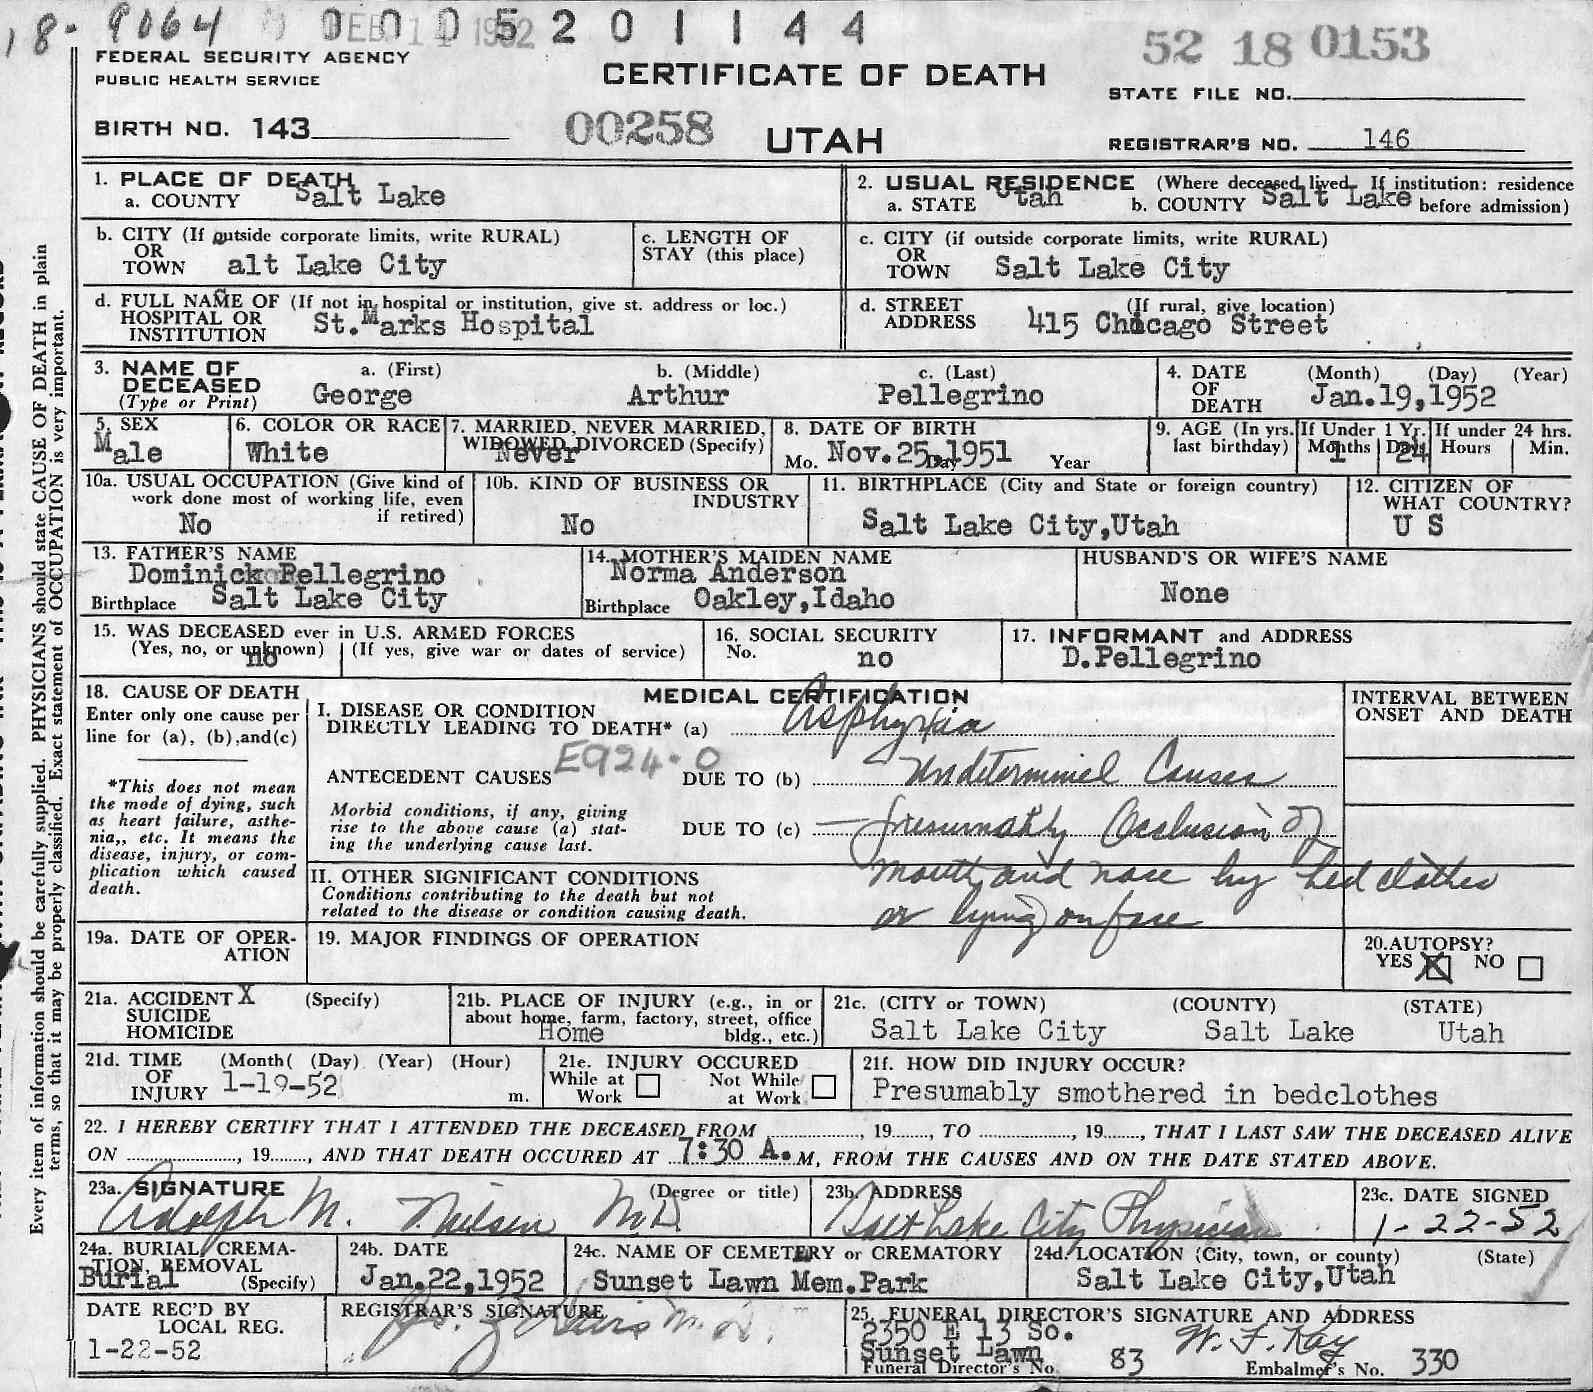 18. 9064 0005201144
FEB 11 1952
52 18 0153
FEDERAL SECURITY AGENCY
PUBLIC HEALTH SERVICE
CERTIFICATE OF DEATH
STATE FILE NO.
BIRTH NO. 143
00258
UTAH
REGISTRAR'S NO. 146
Every item of information should be carefully supplied. PHYSICIANS should state CAUSE OF DEATH in plain
terms, so that it may be properly classified. Exact statement of OCCUPATION is very important.
1. PLACE OF DEATH
a. COUNTY Salt Lake
2. USUAL RESIDENCE (Where deceased lived. If institution: residence
a. STATE Utah b. COUNTY Salt Lake before admission)
b. CITY (If outside corporate limits, write RURAL)
OR
TOWN Salt Lake City
c. LENGTH OF
STAY (this place)
c. CITY (if outside corporate limits, write RURAL)
OR
TOWN Salt Lake City
d. FULL NAME OF (If not in hospital or institution, give st. address or loc.)
HOSPITAL OR
INSTITUTION St.Marks Hospital
d. STREET (If rural, give location)
ADDRESS 415 Chicago Street
3. NAME OF a. (First) b. (Middle) c. (Last)
DECEASED
(Type or Print) George Arthur Pellegrino
4. DATE (Month) (Day) (Year)
OF
DEATH Jan.19,1952
5. SEX
Male
6. COLOR OR RACE
White
7. MARRIED, NEVER MARRIED,
WIDOWED, DIVORCED (Specify)
Never
8. DATE OF BIRTH
Mo. Nov.25,1951 Day Year
9. AGE (In yrs. last birthday)
If Under 1 Yr.
Months 1 Days 24
If under 24 hrs.
Hours Min.
10a. USUAL OCCUPATION (Give kind of
work done most of working life, even
if retired)
No
10b. KIND OF BUSINESS OR
INDUSTRY
No
11. BIRTHPLACE (City and State or foreign country)
Salt Lake City,Utah
12. CITIZEN OF
WHAT COUNTRY?
U S
13. FATHER'S NAME
Dominick Pellegrino
Birthplace Salt Lake City
14. MOTHER'S MAIDEN NAME
Norma Anderson
Birthplace Oakley,Idaho
HUSBAND'S OR WIFE'S NAME
None
15. WAS DECEASED ever in U.S. ARMED FORCES
(Yes, no, or unknown) (If yes, give war or dates of service)
no
16. SOCIAL SECURITY
No. no
17. INFORMANT and ADDRESS
D.Pellegrino
18. CAUSE OF DEATH
Enter only one cause per
line for (a), (b),and(c)
*This does not mean
the mode of dying, such
as heart failure, asthe-
nia,, etc. It means the
disease, injury, or com-
plication which caused
death.
MEDICAL CERTIFICATION
I. DISEASE OR CONDITION
DIRECTLY LEADING TO DEATH* (a) Asphyxia
E924.0
ANTECEDENT CAUSES DUE TO (b) Undetermined Causes
Morbid conditions, if any, giving
rise to the above cause (a) stat-
ing the underlying cause last.
DUE TO (c) — presumably Occlusion of
mouth and nose by bed clothes
or lying on face
II. OTHER SIGNIFICANT CONDITIONS
Conditions contributing to the death but not
related to the disease or condition causing death.
INTERVAL BETWEEN
ONSET AND DEATH
19a. DATE OF OPER-
ATION
19. MAJOR FINDINGS OF OPERATION
20.AUTOPSY?
YES X NO
21a. ACCIDENT X (Specify)
SUICIDE
HOMICIDE
21b. PLACE OF INJURY (e.g., in or
about home, farm, factory, street, office
bldg., etc.)
Home
21c. (CITY or TOWN) (COUNTY) (STATE)
Salt Lake City Salt Lake Utah
21d. TIME (Month( (Day) (Year) (Hour)
OF
INJURY 1-19-52 m.
21e. INJURY OCCURED
While at Work Not While at Work
21f. HOW DID INJURY OCCUR?
Presumably smothered in bedclothes
22. I HEREBY CERTIFY THAT I ATTENDED THE DECEASED FROM ............, 19......, TO ............, 19......, THAT I LAST SAW THE DECEASED ALIVE
ON ............, 19......, AND THAT DEATH OCCURED AT 7:30 A.M, FROM THE CAUSES AND ON THE DATE STATED ABOVE.
23a. SIGNATURE (Degree or title)
Adolph M. Nielsen M.D.
23b. ADDRESS
Salt Lake City Physician
23c. DATE SIGNED
1-22-52
24a. BURIAL, CREMA-
TION, REMOVAL
Burial (Specify)
24b. DATE
Jan.22,1952
24c. NAME OF CEMETERY or CREMATORY
Sunset Lawn Mem.Park
24d. LOCATION (City, town, or county) (State)
Salt Lake City,Utah
DATE REC'D BY
LOCAL REG.
1-22-52
REGISTRAR'S SIGNATURE
M.D.
25. FUNERAL DIRECTOR'S SIGNATURE AND ADDRESS
2350 E 13 So. W. F. Kay
Sunset Lawn
Funeral Director's No. 83 Embalmer's No. 330